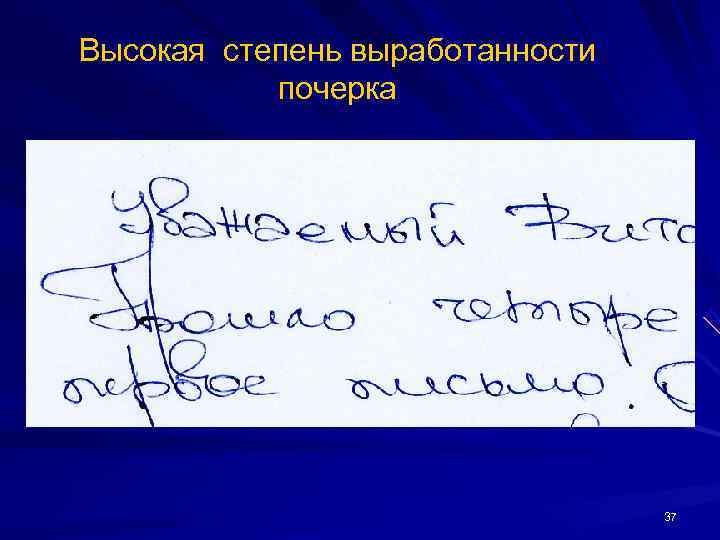 Высокая степень выработанности
почерка
Уважаемый Вита
Прошло четыре
первое письмо. С
37